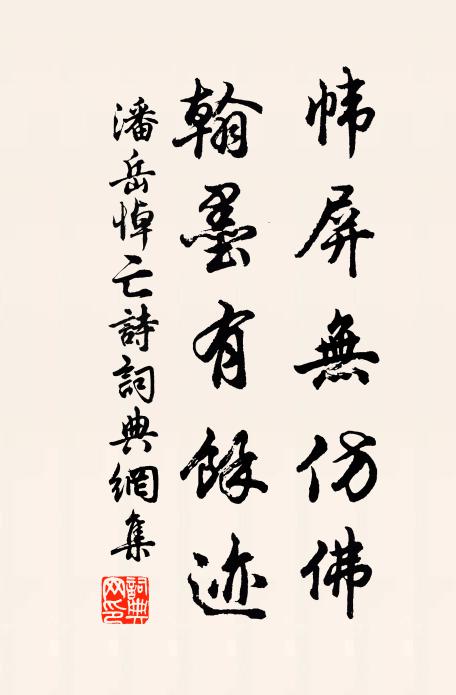 幃屏無仿佛
翰墨有餘迹
潘岳悼亡詩詞典網集
詞典網印